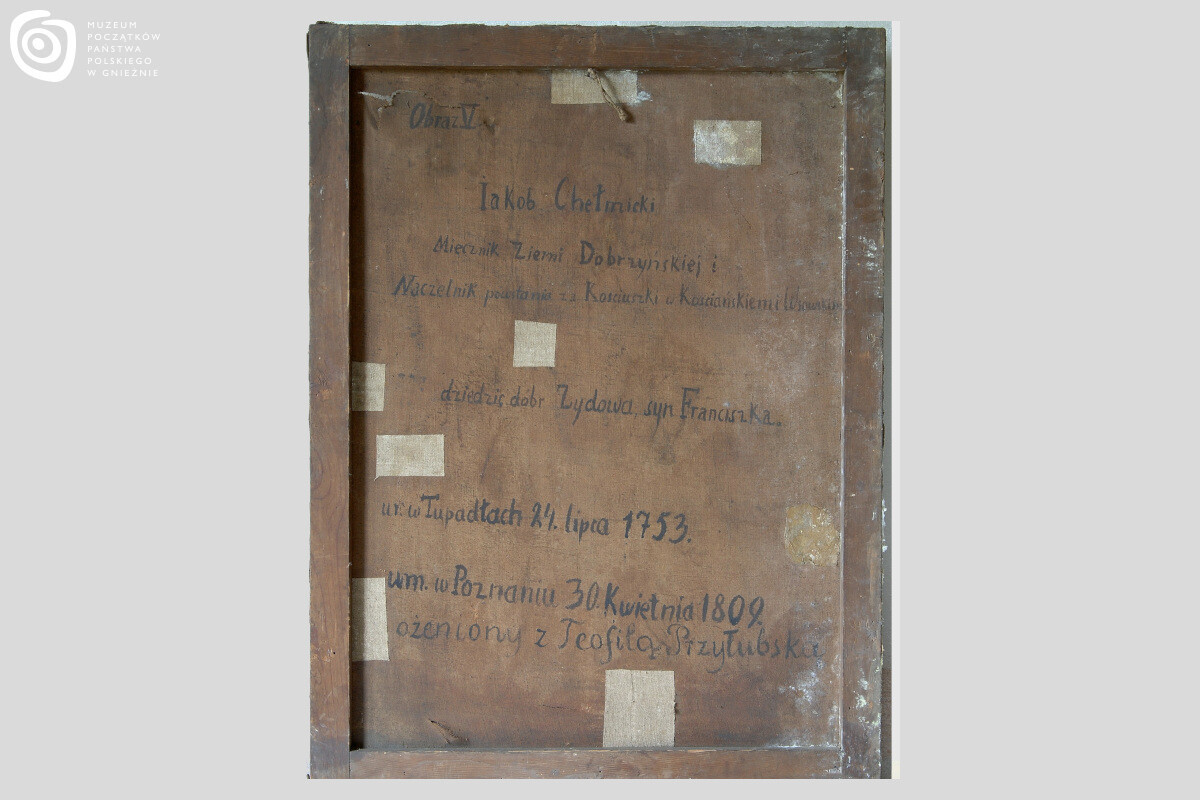 MUZEUM
POCZĄTKÓW
PAŃSTWA
POLSKIEGO
W GNIEŹNIE
Obraz V.
Jakob Chełmicki
Miecznik Ziemi Dobrzyńskiej i
Naczelnik powstania za Kościuszki w Kościańskiem i
dziedzic dobr Zydowa, syn Franciszka.
ur. w Tupadłach 24. lipca 1753.
um. w Poznaniu 30. Kwietnia 1809.
ożeniony z Teofilą Przyłubską